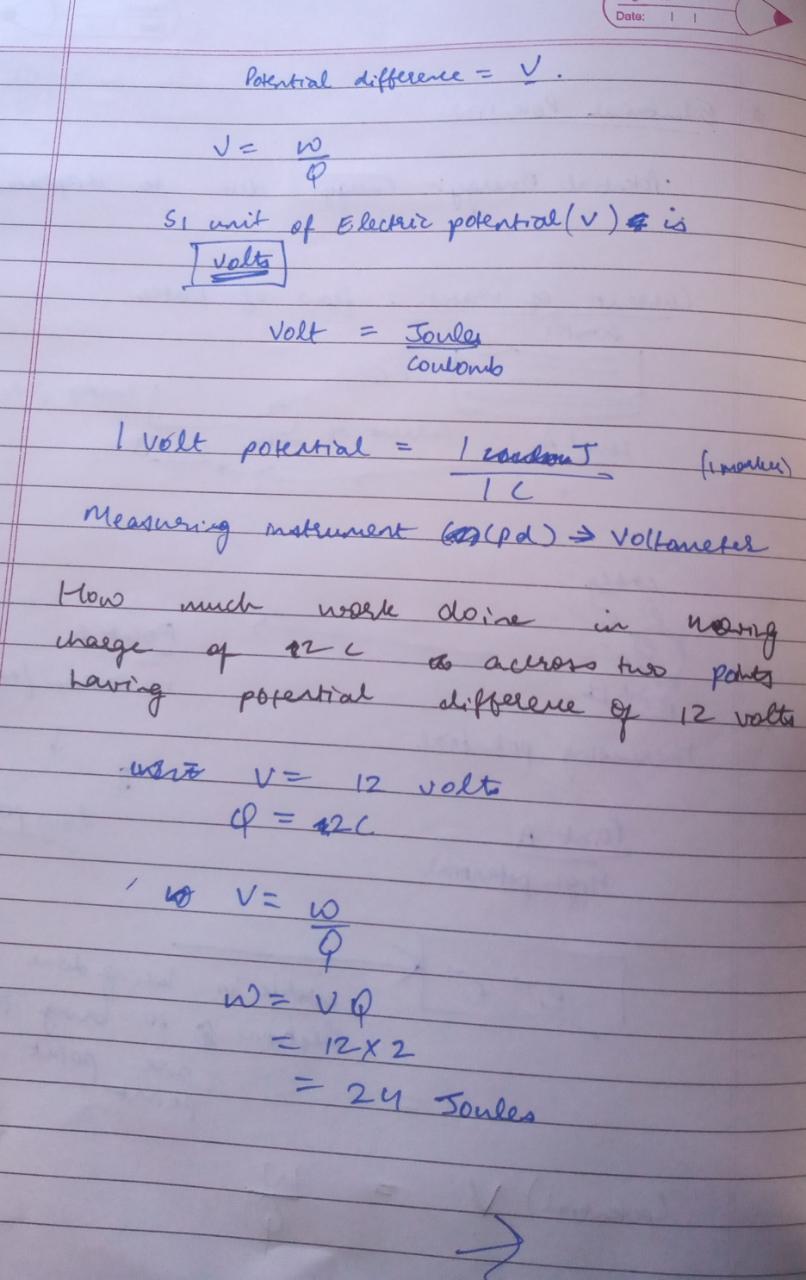 Date:
Potential difference = V.
V = W
Q
SI unit of Electric potential (V) is
volts
Volt = Joules
Coulomb
1 volt potential = 1 J (1 marks)
1 C
Measuring instrument (pd) → Voltameter
How much work doine in moving
charge of 2 C across two points
having potential difference of 12 volts
V = 12 volts
Q = 2C
V = W
Q
W = VQ
= 12 x 2
= 24 Joules